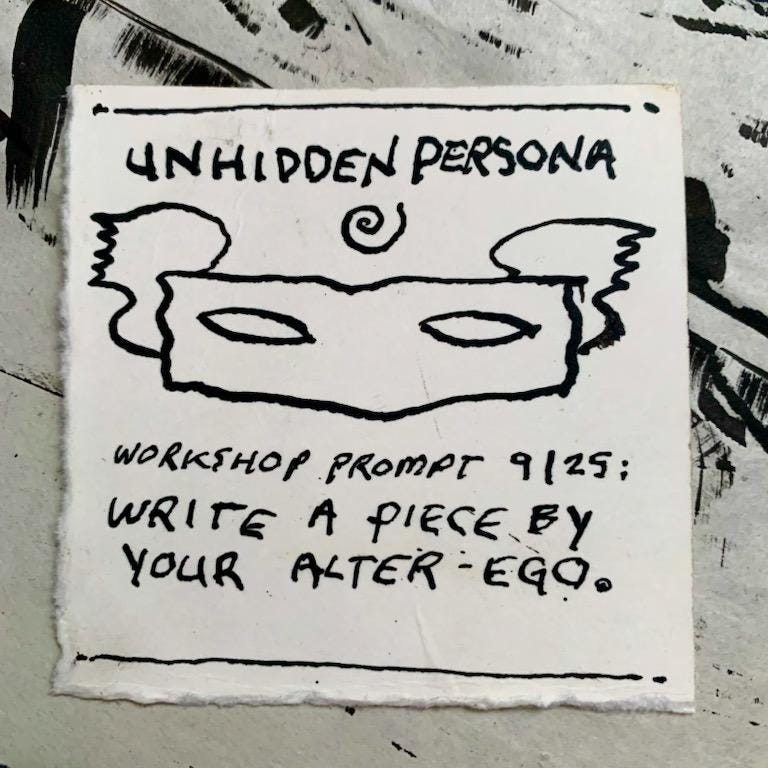 UNHIDDEN PERSONA
WORKSHOP PROMPT 9/25:
WRITE A PIECE BY
YOUR ALTER-EGO.